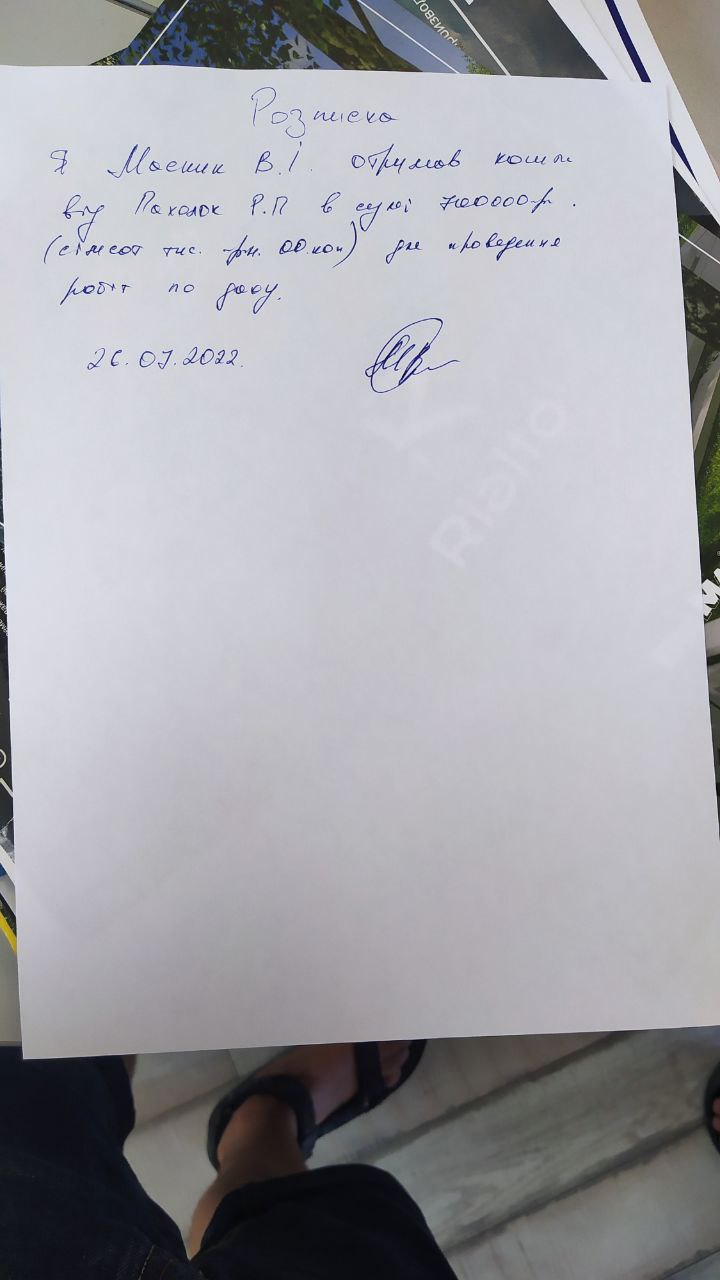 Розписка
Я Масник В.І. отримав кошти
від Пахолок Р.П в сумі 700000гр.
(сімсот тис. грн. 00.коп) для проведення
робіт по даху.
26.07.2022.
Rialto